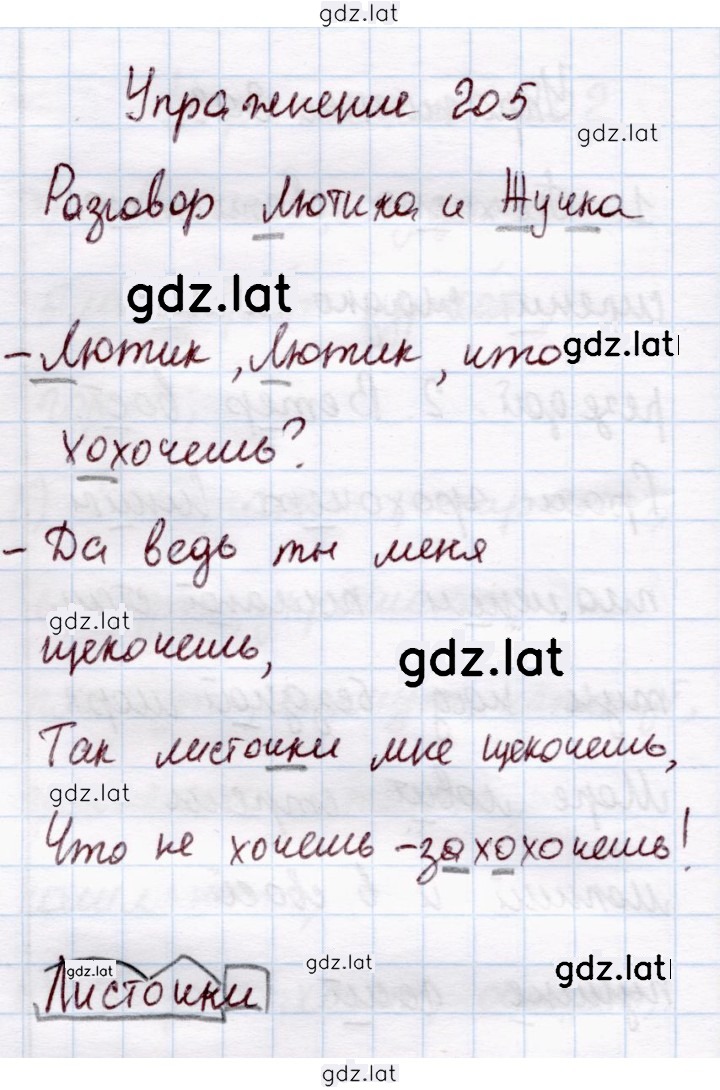 gdz.lat
Упражнение 205
gdz.lat
Разговор Лютика и Жучка
gdz.lat
– Лютик, Лютик, что
gdz.lat
хохочешь?
– Да ведь ты меня
gdz.lat
щекочешь,
gdz.lat
Так листочки мне щекочешь,
gdz.lat
Что не хочешь – захохочешь!
gdz.lat
gdz.lat
gdz.lat
Листочки
gdz.lat